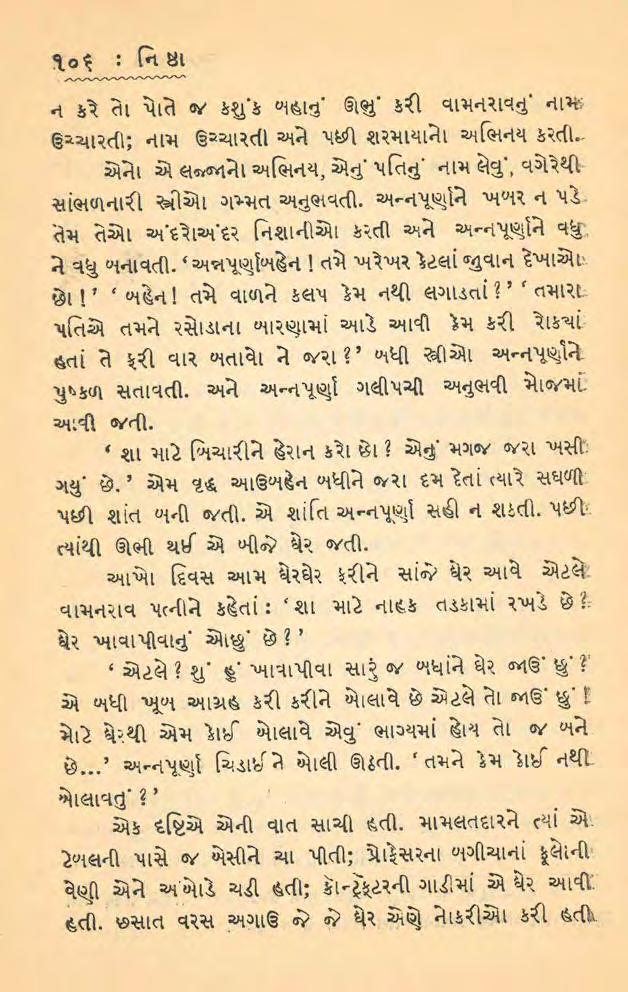 ૧૦૬ : નિષ્ઠા
ન કરે તો પોતે જ કશુંક બહાનું ઊભું કરી વામનરાવનું નામ
ઉચ્ચારતી; નામ ઉચ્ચારતી અને પછી શરમાયાનો અભિનય કરતી.
એનો એ લજ્જાનો અભિનય, એનું પતિનું નામ લેવું, વગેરેથી
સાંભળનારી સ્ત્રીઓ ગમ્મત અનુભવતી. અન્નપૂર્ણાને ખબર ન પડે
તેમ તેઓ અંદરોઅંદર નિશાનીઓ કરતી અને અન્નપૂર્ણાને વધુ
ને વધુ બનાવતી. ‘અન્નપૂર્ણાબહેન ! તમે ખરેખર કેટલાં જુવાન દેખાઓ
છો !’ ‘ બહેન! તમે વાળને કલપ કેમ નથી લગાડતાં ?’ ‘ તમારા
પતિએ તમને રસોડાના બારણામાં આડે આવી કેમ કરી રોક્યાં
હતાં તે ફરી વાર બતાવો ને જરા ?’ બધી સ્ત્રીઓ અન્નપૂર્ણાને
પુષ્કળ સતાવતી. અને અન્નપૂર્ણા ગલીપચી અનુભવી મોજમાં
આવી જતી.
‘ શા માટે બિચારીને હેરાન કરો છો ? એનું મગજ જરા ખસી
ગયું છે.’ એમ વૃદ્ધ આઉબહેન બધીને જરા દમ દેતાં ત્યારે સઘળી
પછી શાંત બની જતી. એ શાંતિ અન્નપૂર્ણા સહી ન શકતી. પછી
ત્યાંથી ઊભી થઈ એ બીજે ઘેર જતી.
આખો દિવસ આમ ઘેરઘેર ફરીને સાંજે ઘેર આવે એટલે
વામનરાવ પત્નીને કહેતાં : ‘શા માટે નાહક તડકામાં રખડે છે ?
ઘેર ખાવાપીવાનું ઓછું છે ?’
‘ એટલે ? શું હું ખાવાપીવા સારું જ બધાંને ઘેર જાઉં છું ?
એ બધી ખૂબ આગ્રહ કરી કરીને બોલાવે છે એટલે તો જાઉં છું !
મોટે ઘેરથી એમ કોઈ બોલાવે એવું ભાગ્યમાં હોય તો જ બને
છે...’ અન્નપૂર્ણા ચિડાઈ ને બોલી ઊઠતી. ‘તમને કેમ કોઈ નથી
બોલાવતું ?’
એક દૃષ્ટિએ એની વાત સાચી હતી. મામલતદારને ત્યાં એ
ટેબલની પાસે જ બેસીને ચા પીતી; પ્રોફેસરના બગીચાનાં ફૂલોની
વેણી એને અંબોડે ચડી હતી; કૉન્ટ્રૅક્ટરની ગાડીમાં એ ઘેર આવી
હતી. છસાત વરસ અગાઉ જે જે ઘેર એણે નોકરીઓ કરી હતી